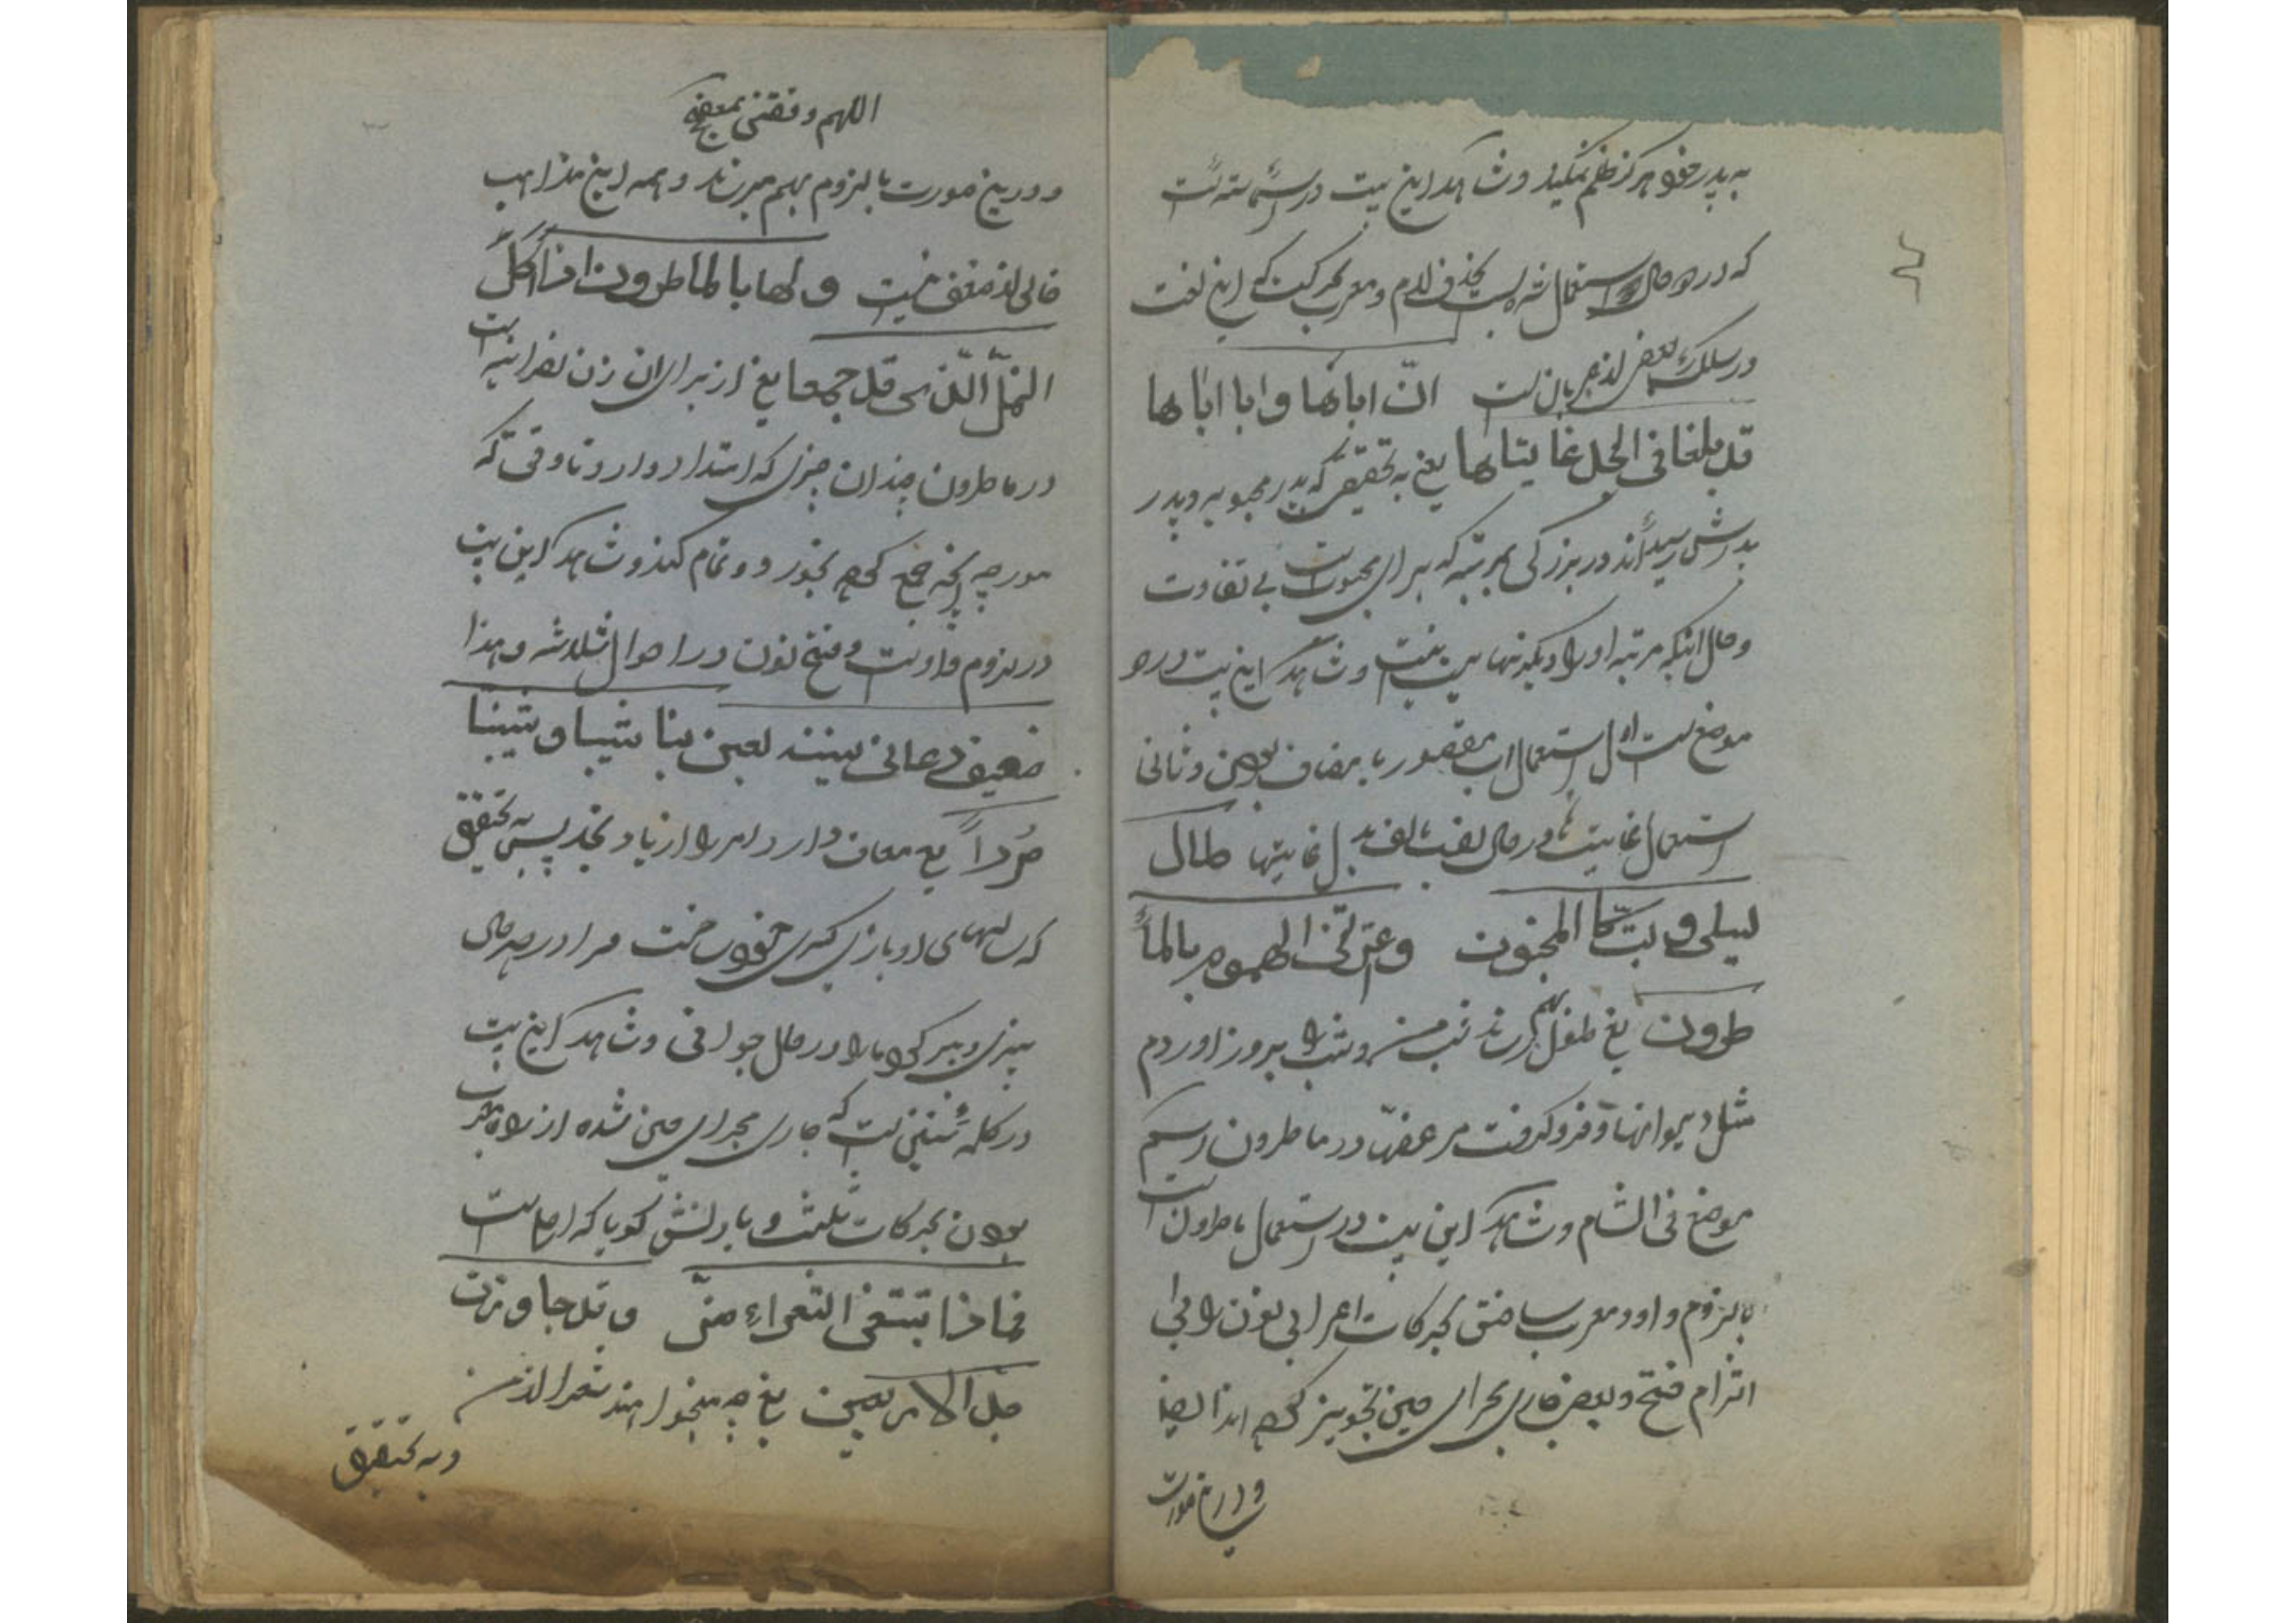 به پدر خود هرگز ظلم نمیکند و شاهد این بیت در استعمال است
که در دو حال استعمال شده است بحذف لام و معرب بحرکت که این لغت
در مسلک بعض از عربان است انّ اباها و ابا اباها
قد بلغا فی المجد غایتاها یعنی به تحقیق که پدر محبوبه و پدر
پدرش رسیده‌اند در بزرگی بمرتبه که برای محبوب است بی تفاوت
و حال اینکه مرتبه او را دیگر نهایت نیست و شاهد این بیت در دو
موضع است اول استعمال اب مقصور با مضاف بودن و ثانی
استعمال غایتا در حال نصب بالف بدل غایتیها طال
لیلی و بتّ کالمجنون و اعترتنی الهموم بالما
طرون یعنی طول بهم رساند شب من و شب را بروز آوردم
مثل دیوانها و فرو گرفت مرا غمها در ماطرون اسم
موضع فی الشام و شاهد این بیت در استعمال ماطرون است
بالزوم واو و معرب ساختن بحرکات اعرابی نون را بی
التزام فتح و بعض جاری مجرای حین تجویز کرده‌اند ایضا
و در این صورت
اللهم وفقنی
و در این صورت با لزوم بهم میرساند و همه این مذاهب
خالی از ضعف نیست و لها بالماطرون اذا اکل
النمل الّذی جمعا یعنی از برای ان زن نصرانیه است
در ماطرون چندان چیزی که امتداد دارد تا وقتی که
مورچه آنچه جمع کرده بخورد و تمام کند و شاهد این بیت
در لزوم واو است و فتح نون در احوال ثلاثه و هذا
ضعیف دعانی سنینه لعبن بنا شیبا و شیبننا
مُرداً یعنی معاف دارد امر را از یاد نجد پس به تحقیق
که سالهای او بازی گری خود ساخت مرا در حال
پیری و پیر کرد ما را در حال جوانی و شاهد این بیت
در کلمه سنین است که جاری مجرای حین شده از راه معرب
بودن بحرکات ثلث و بادانش گویا که اصلی است
فماذا تبتغی الشعراء منّی و قد جاوزت
حدّ الاربعین یعنی چه میخواهند شعرا از من
و به تحقیق